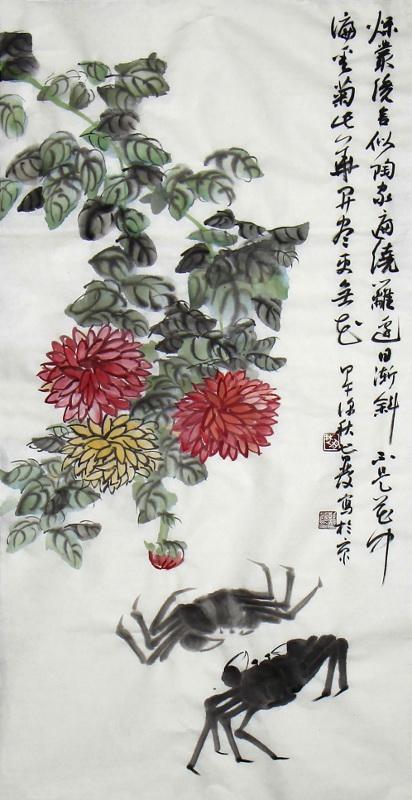 秌叢繞舍似陶家遍繞籬邊日漸斜 不是花中
偏愛菊此華開盡更無花
深秋 寫於京